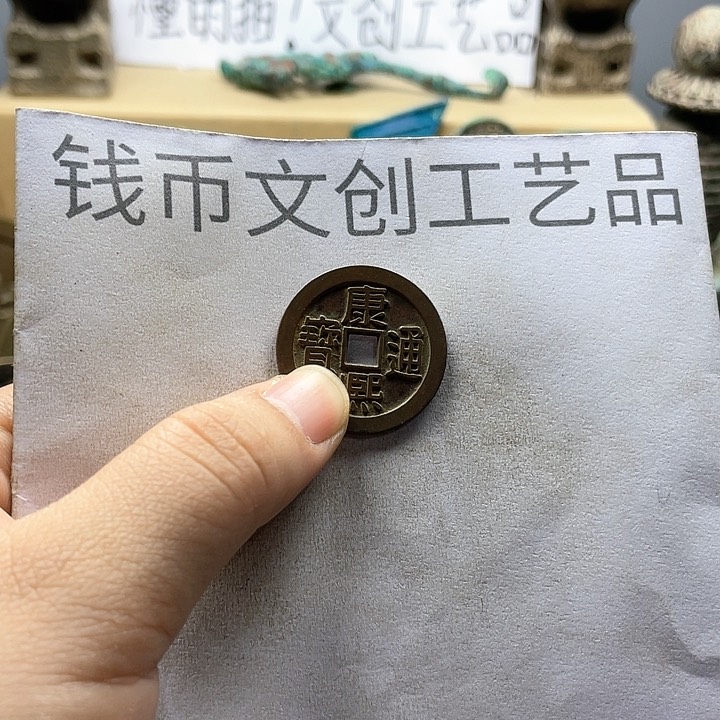 懂的拍!文创工艺品
钱币文创工艺品
康熙通寶